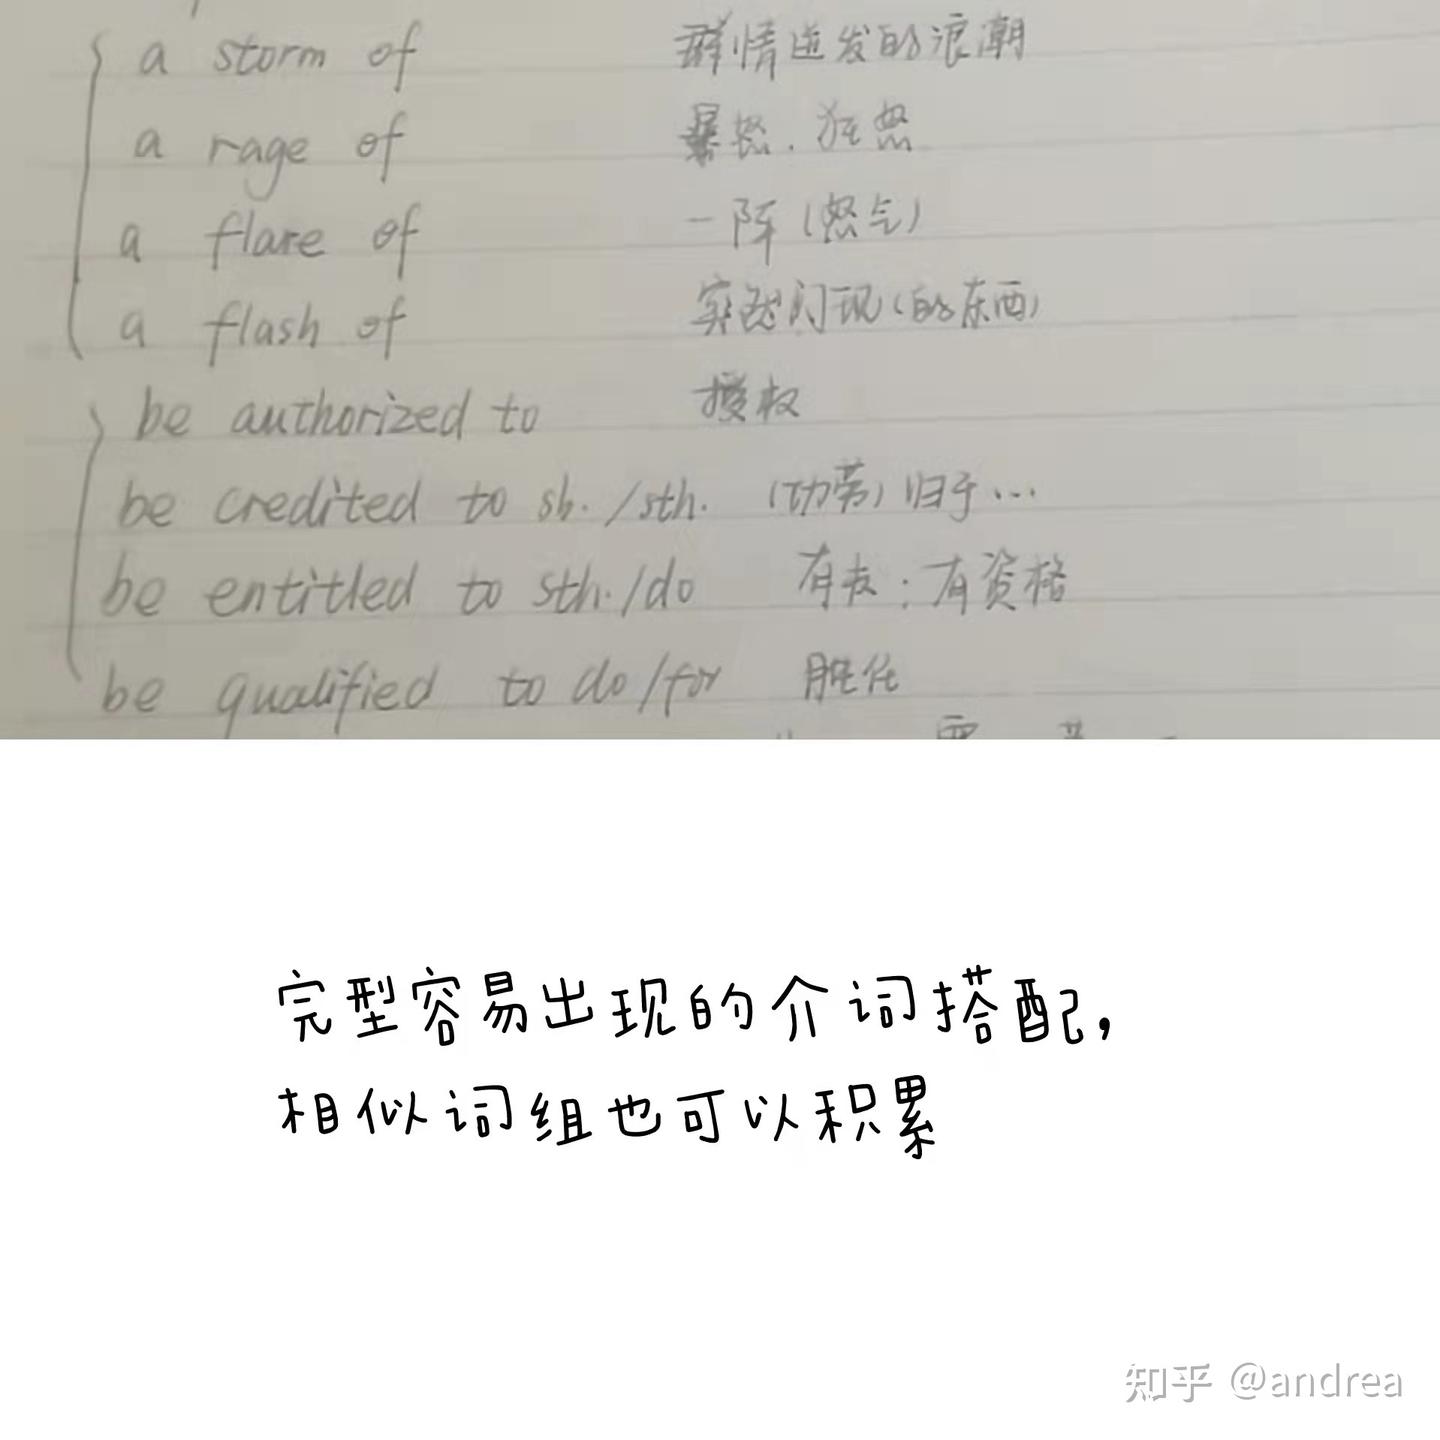 a storm of 群情迸发的浪潮
a rage of 暴怒.狂怒
a flare of 一阵(怒气)
a flash of 突然闪现(的东西)
be authorized to 授权
be credited to sb./sth. (功劳)归于…
be entitled to sth./do 有权;有资格
be qualified to do/for 胜任
完型容易出现的介词搭配,
相似词组也可以积累
知乎 @andrea